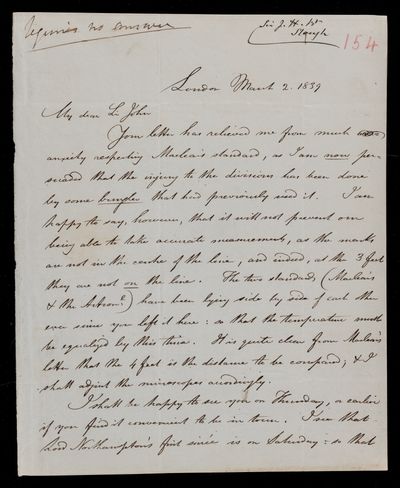 requires no answer
Sir J. H. Bt
Slough
154
London March 2. 1839
My dear Sir John
Your letter has relieved me from much
anxiety respecting Maclear's standard, as I am now per-
suaded that the injury to the divisions has been done
by some bungler that had previously used it. I am
happy to say, however, that it will not prevent our
being able to take accurate measurements, as the marks
are not in the centre of the line, and indeed, at the 3 feet
they are not on the line. The two standards, (Maclear's
& the Astronl.) have been lying side by side of each other
ever since you left it here: so that the temperature must
be equalized by this time. It is quite clear from Maclear's
letter that the 4 feet is the distance to be compared; & I
shall adjust the microscopes accordingly.
I shall be happy to see you on Thursday, or earlier
if you find it convenient to be in town. I see that
Lord Northampton's first soirée is on Saturday: so that